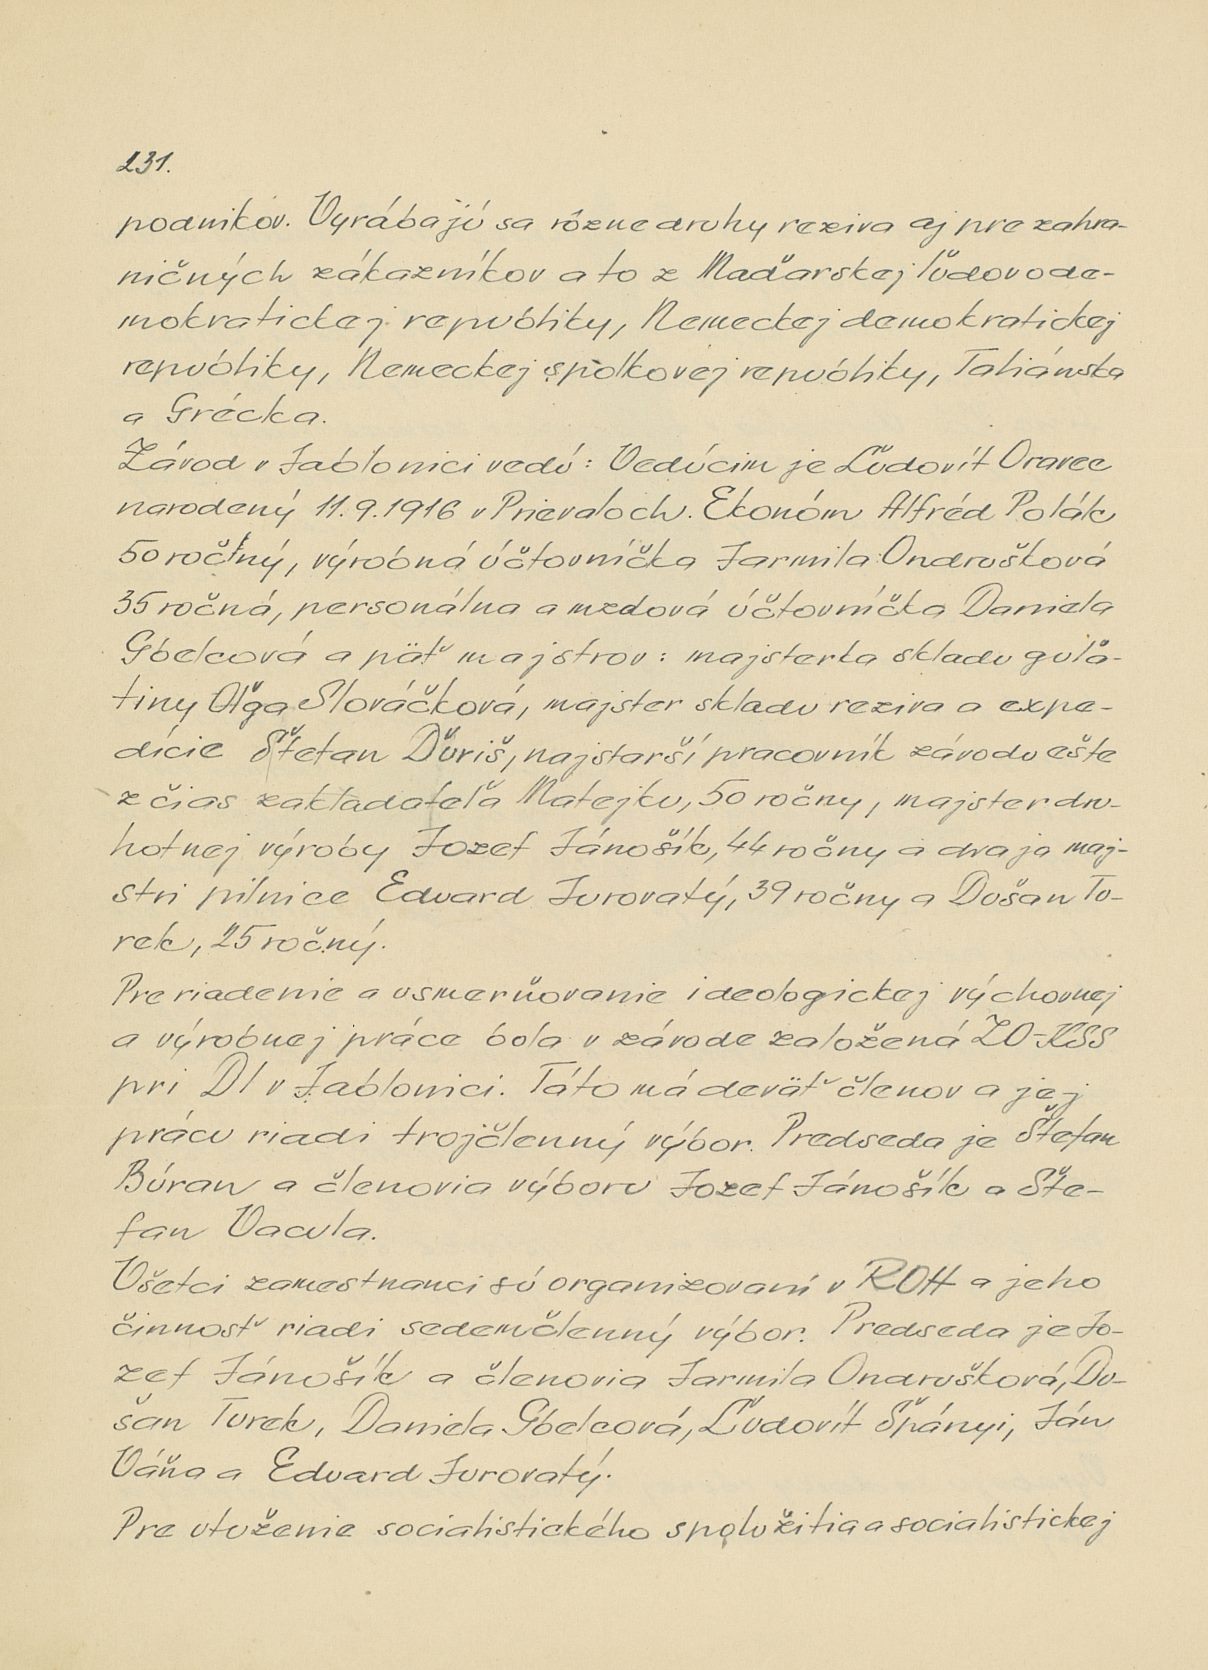 231.
podnikov. Vyrábajú sa rôzne druhy reziva aj pre zahra-
ničných zákazníkov a to z Maďarskej ľudovo de-
mokratickej republiky, Nemeckej demokratickej
republiky, Nemeckej spolkovej republiky, Taliánska
a Grécka.
Závod v Jablonici vedú: Vedúcim je Ľudovít Oravec
narodený 11.9.1916 v Prievaloch. Ekonóm Alfréd Polák
50 ročný, výrobná účtovníčka Jarmila Ondrušková
35 ročná, personálna a mzdová účtovníčka Daniela
Gbelcová a päť majstrov: majsterka skladu guľa-
tiny Oľga Slováčková, majster skladu reziva a expe-
dície Štefan Ďuriš, najstarší pracovník závodu ešte
z čias zakladateľa Matejku, 50 ročny, majster dru-
hotnej výroby Jozef Jánošík, 44 ročny a dvaja maj-
stri pilnice Eduard Jurovatý, 39 ročny a Dušan Tu-
rek, 25 ročný.
Pre riadenie a usmerňovanie ideologickej výchovnej
a výrobnej práce bola v závode založená ZO-KSS
pri DI v Jablonici. Táto má deväť členov a jej
prácu riadi trojčlenný výbor. Predseda je Štefan
Búran a členovia výboru Jozef Jánošík a Šte-
fan Vacula.
Všetci zamestnanci sú organizovaní v ROH a jeho
činnosť riadi sedemčlenný výbor. Predseda je Jo-
zef Jánošík a členovia Jarmila Ondrušková, Du-
šan Turek, Daniela Gbelcová, Ľudovít Špányi, Ján
Váňa a Eduard Jurovatý.
Pre utuženie socialistického spolužitia a socialistickej